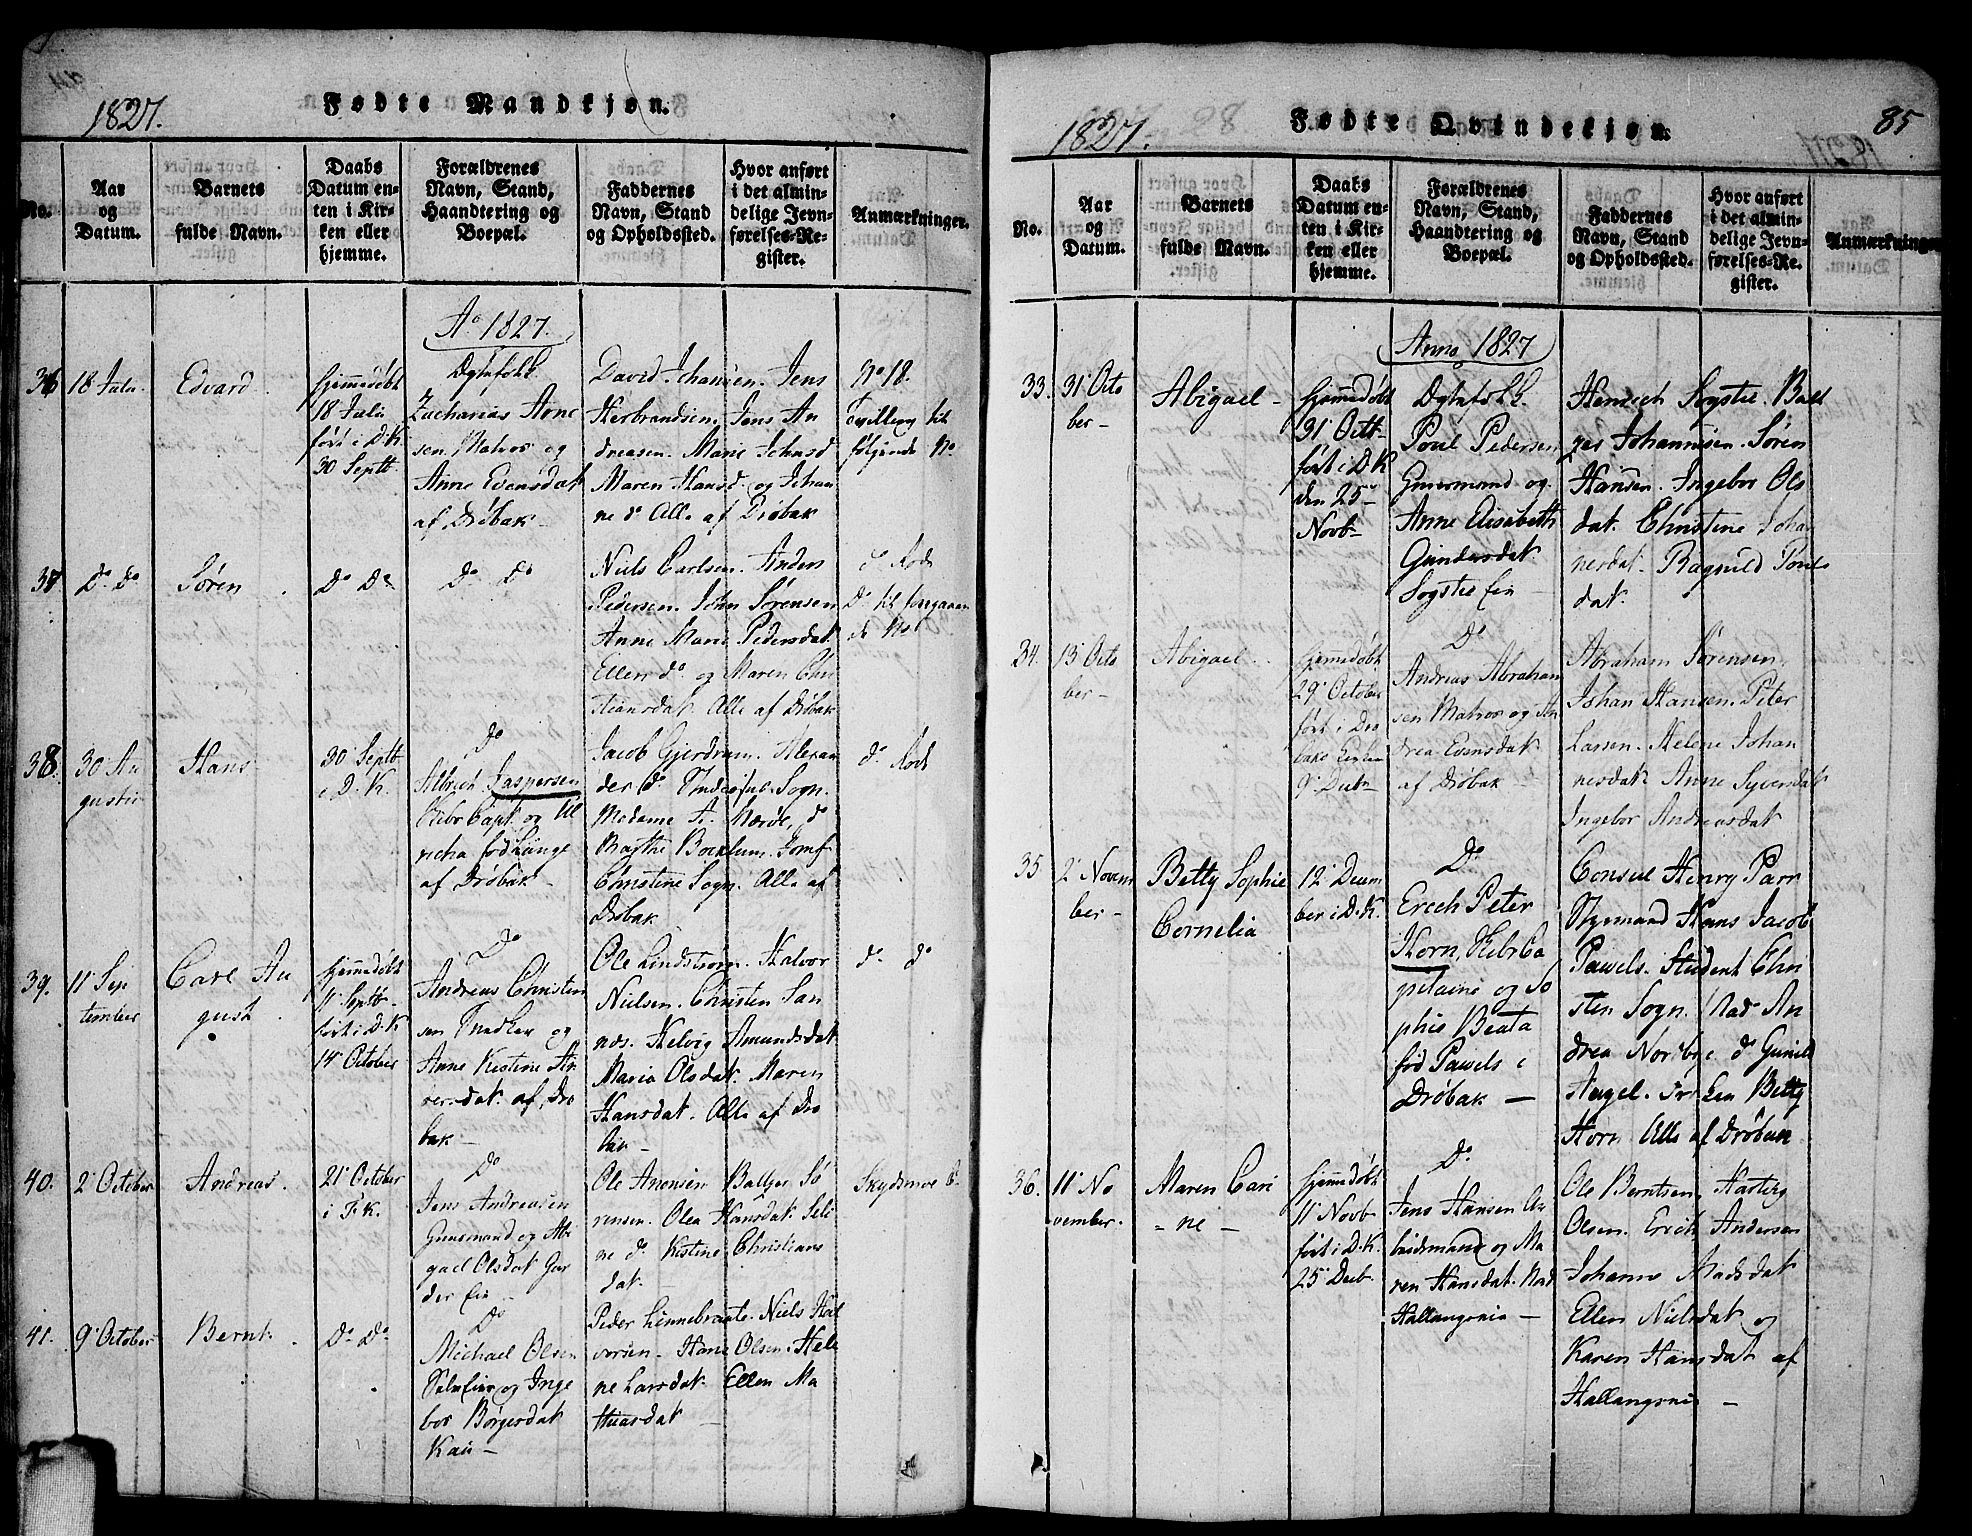 1827.
Fødte Mandkjøn.
No.
Aar og Datum.
Barnets fulde Navn.
Daabs Datum enten i Kirken eller hjemme.
Forældrenes Navn, Stand, Haandtering og Boepæl.
Faddernes Navn, Stand og Opholdssted.
Hvor anført i det almindelige Jevnførelses-Register.
Anmærkninger.
Ao 1827.
36
18 Julii
Edvard
hjemmedøbt
18 Julii
ført i D. K.
30 Septb.
Ægtefolk
Zacharias Arne
sen Matros og
Anne Evensdat
af Drøbak
David Johansen. Jens
Herbrandsen. Jens An
dreasen. Marie Johnsd
Maren Hansd. og Johan
ne do Alle af Drøbak
No 18.
Tvilling til
følgende No
37
Do Do
Søren
Do Do
Do Do
Niels Carlsen. Anders
Pedersen. John Sørensen
Anne Marie Pedersdat.
Ellen do og Maren Chri
stiansdat. Alle af Drøbak
Do til foregaaen
de No
38.
30 Au
gustii
Hans
30 Septb
i D. K.
Do
Albrech Jaspersen
Skibs Capt. og Ul
richa fød Lunge
af Drøbak
Jacob Gjerdrum. Alexan
der do. Sogn.
Madame A. Nærøe, do
Bagthe Bocklum. Jomf
Christine Sogn. Alle af
Drøbak
do
39.
11 Sep
tember
Carl Au
gust
hjemmedøbt
11 Septb
ført i D. K
14 October
Do
Andreas Christen
sen Snedker og
Anne Kistine An
dersdat. af Drø
bak
Ole Lindstrøm. Halvor
Nielsen. Christen San
næs. Helvig Amundsdat
Maria Olsdat. Maren
Hansdat. Alle af Drø
bak
do do
40.
2 October
Andreas.
21 October
i F. K.
Do
Jens Andreasen
Huusmand og Abi
gael Olsdat Gar
der Eie
Ole Anensen Baltzer Sö
rensen. Olea Hansdat. Seli
ne do. Kistine Christians
dat
41.
9 October
Bernt.
Do Do
Do
Michael Olsen
og Inge
bor Børgesdat
Peder Linnebraate. Niels Hal
vorsen. Hans Olsen. Hele
ne Larsdat. Ellen Ma
thiasdat
1827.
Fødte Qvindekjøn.
85
No.
Aar og Datum.
Barnets fulde Navn.
Daabs Datum enten i Kirken eller hjemme.
Forældrenes Navn, Stand, Haandtering og Boepæl.
Faddernes Navn, Stand og Opholdssted.
Hvor anført i det almindelige Jevnførelses-Register.
Anmærkninger
Anno 1827
33.
31 Octo
ber
Abigael
hjemmedøbt
31 Octb
ført i D. K
den 25
Novb
Ægtefolk.
Poul Pedersen
Huusmand og
Anne Elisabeth
Gundersdat
Sogstie Eie
Henrich Sogstie. Balt
zer Johannesen. Søren
Hansen. Ingebor Ols
dat. Christine Johan
nesdat. Ragnild Pouls
dat.
34.
13 Octo
ber
Abigael
hjemmedøbt
29 October
ført i Drø
baks Kirken
9 Decbr
Do
Andreas Abraham
sen Matros og An
drea Evensdat
af Drøbak
Abraham Sørensen
Johan Hansen. Peter
Larsen. Helene Johan
nesdat. Anne Syversdat
Ingebor Andreasdat
35
2 Novem
ber
Betty Sophie
Cornelia
12 Decem
ber i D. K.
Do
Erich Peter
Horn, Skibs Ca
pitaine og So
phie Beata
fød Pawels i
Drøbak
Consul Henry Parr
Styrmand Hans Jacob
Pawels. Student Chri
sten Sogn. Mad An
drea Norbye. do Gunild
Nagel. Frøken Betty
Horn Alle af Drøbak
36.
11 No
vember.
Maren Cari
ne
hjemmedøbt
11 Novb
ført i D. K.
25 Decb.
Do
Jens Hansen Ar
beidsmand og Ma
ren Hansdat. Nord
Hallangspie
Ole Berntsen. Hartvig
Olsen. Erich Andersen
Johanne Madsdat
Ellen Nielsdat og
Karen Hansdat af
Hallangspie